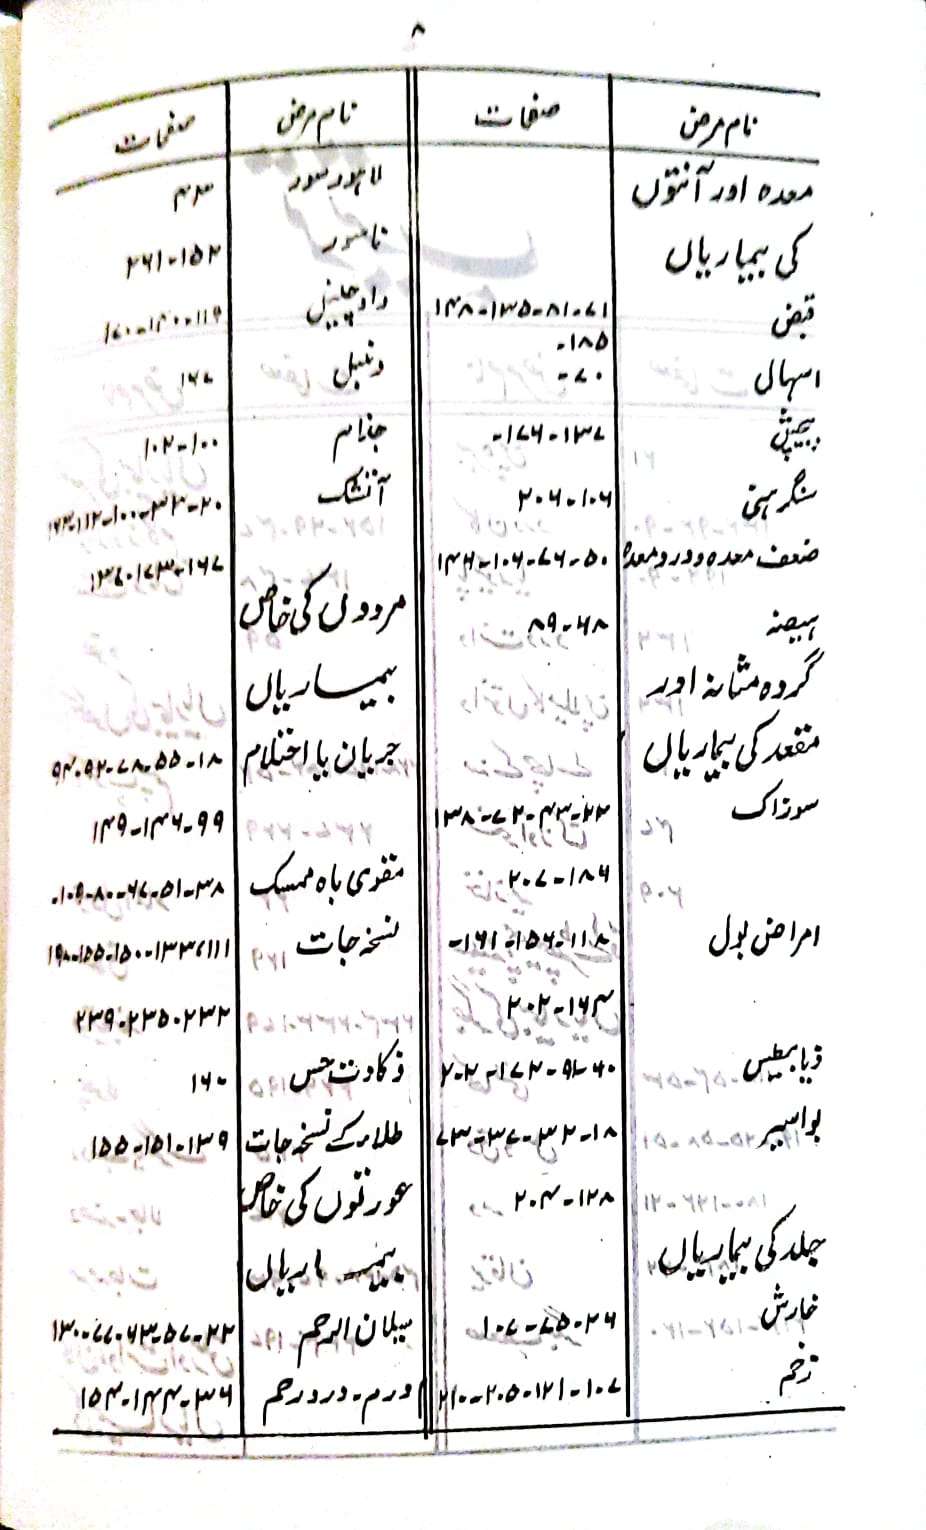 ۸
نام مرض صفحات
معدہ اور آنتوں
کی بیماریاں
قبض ۷۱-۸۱-۱۳۵-۱۴۸
۱۸۵-
اسہال ۷۰-
پیچش ۱۳۷-۱۷۶-
سنگرہنی ۱۰۶-۲۰۶
ضعف معدہ و درد معدہ ۵۰-۷۶-۱۰۶-۱۴۶
ہیضہ ۶۸-۸۹
گردہ مثانہ اور
مقعد کی بیماریاں
سوزاک ۲۳-۴۳-۷۲-۱۳۸
۱۸۶-۲۰۷
امراض بول ۱۱۸-۱۵۶-۱۶۱-
۱۶۴-۲۰۲
ذیابیطس ۶۰-۹۱-۱۷۲-۲۰۲
بواسیر ۱۸-۳۲-۳۷-۷۳
۱۲۸-۲۰۴
جلد کی بیماریاں
خارش ۲۶-۷۵-۱۰۷
زخم ۱۰۷-۱۲۱-۲۰۵-۲۱۰
نام مرض صفحات
لاہور سور ۴۳
ناسور ۱۵۲-۲۶۱
داد چنبل ۱۱۶-۱۴۰-۱۷۰
دنبل ۱۶۷
جذام ۱۰۰-۱۰۲
آتشک ۲۰-۳۳-۱۰۰-۱۱۲-۱۶۳
۱۶۷-۱۷۳-۱۳۷
مردوں کی خاص
بیماریاں
جریان یا احتلام ۱۸-۵۵-۷۸-۹۲-۹۴
۹۹-۱۴۶-۱۴۹
مقوی باہ ممسک ۳۸-۵۱-۶۷-۸۰-۱۰۹-
نسخہ جات ۱۱۱-۱۳۳-۱۵۰-۱۵۵-۱۹۸
۲۳۲-۲۳۵-۲۳۹
ذکاوت حس ۱۶۰
طلاء کے نسخہ جات ۱۳۹-۱۵۱-۱۵۵
عورتوں کی خاص
بیماریاں
سیلان الرحم ۲۲-۵۷-۶۳-۷۷-۱۳۰
ورم-درد رحم ۳۶-۱۴۴-۱۵۴